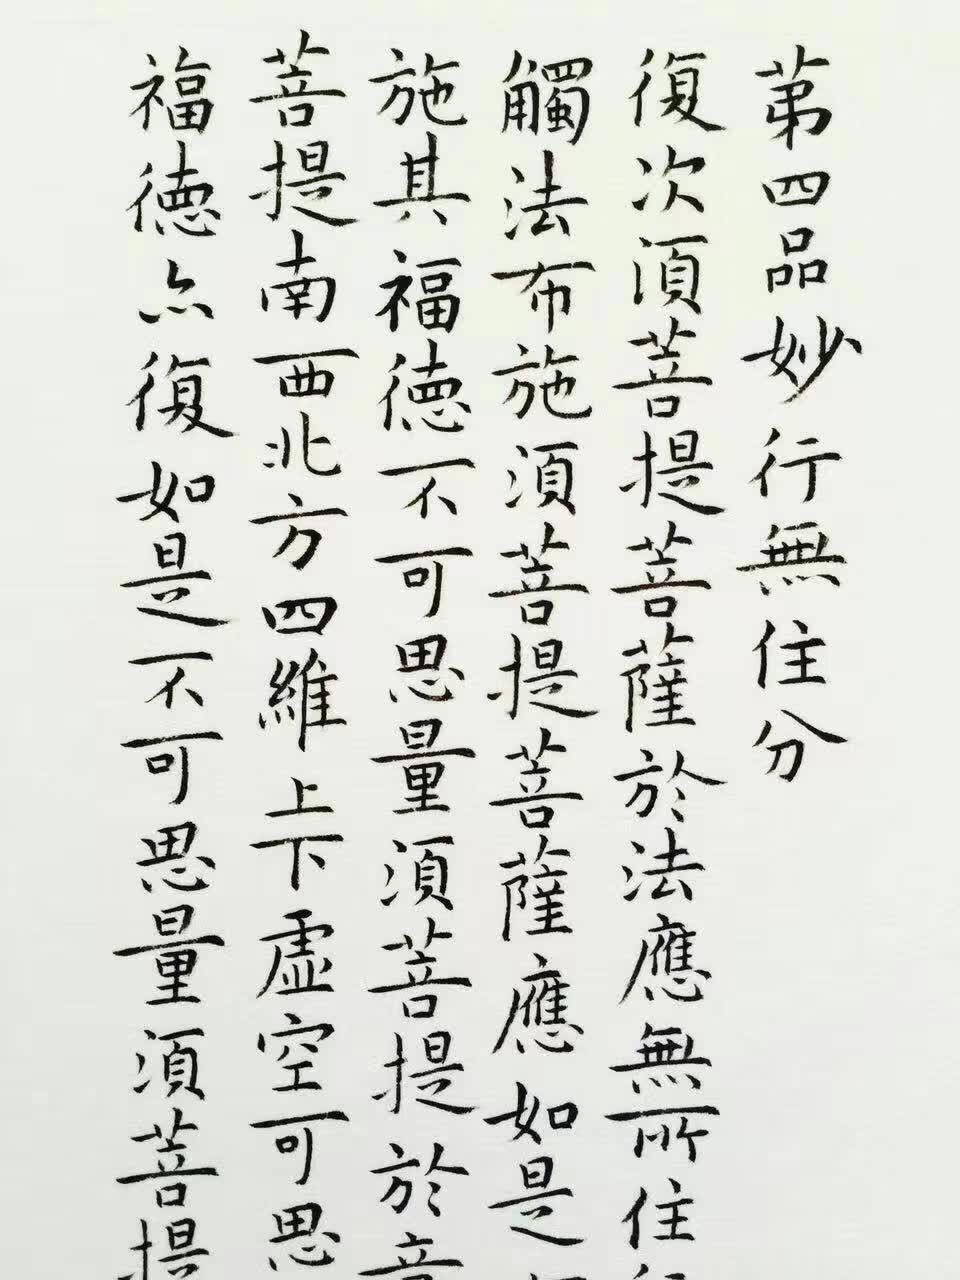 第四品妙行無住分
復次須菩提菩薩於法應無所住行
觸法布施須菩提菩薩應如是
施其福德不可思量須菩提於意
菩提南西北方四維上下虛空可思
福德亦復如是不可思量須菩提